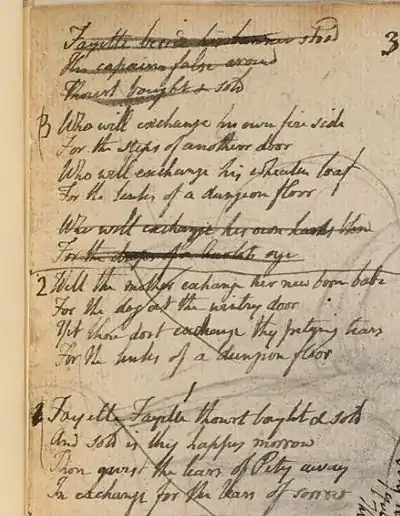 Fayette beside his banner stood
His captains false around
Thourt bought & sold
3
3 Who will exchange his own fire side
For the steps of anothers door
Who will exchange his wheaten loaf
For the links of a dungeon floor
Who will exchange his own hearts blood
For the drops of a harlots eye
2 Will the mother exchange her new born babe
For the dog at the wintry door
Yet thou dost exchange thy pitying tears
For the links of a dungeon floor
1 Fayette Fayette thourt bought & sold
And sold is thy happy morrow
Thou gavest the tears of Pity away
In exchange for the tears of sorrow